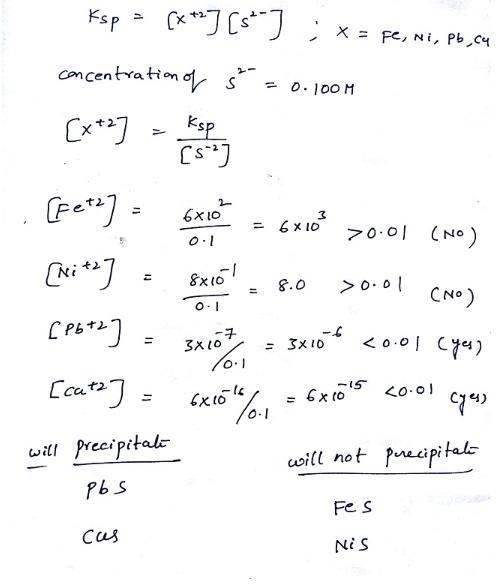 Ksp = [x⁺²][s²⁻] ; x = Fe, Ni, Pb, Cu
concentration of s²⁻ = 0.100M
[x⁺²] = Ksp / [s⁻²]
[Fe⁺²] = 6×10² / 0.1 = 6×10³ >0.01 (NO)
[Ni⁺²] = 8×10⁻¹ / 0.1 = 8.0 >0.01 (NO)
[Pb⁺²] = 3×10⁻⁷ / 0.1 = 3×10⁻⁶ <0.01 (yes)
[ca⁺²] = 6×10⁻¹⁶ / 0.1 = 6×10⁻¹⁵ <0.01 (yes)
will precipitate will not precipitate
Pbs Fes
Cus Nis